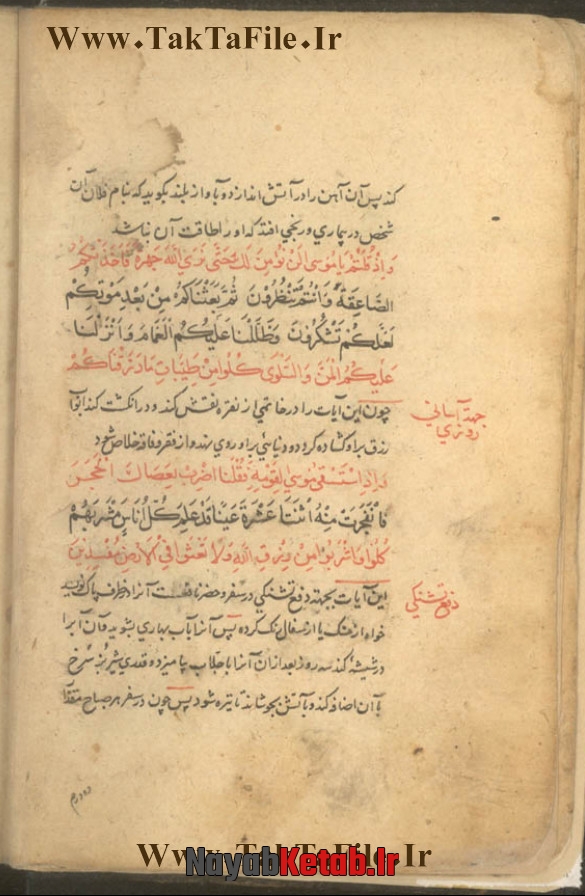 Www.TakTaFile.Ir
کند پس آن آهن را در آتش اندازد و بآواز بلند بکوید که بنام فلان آن
شخص در بیماری و رنجی افتد که او را طاقت آن نباشد
وَاِذْ قُلْتُمْ یَا مُوسَی لَنْ نُؤْمِنَ لَكَ حَتَّی نَرَی اللّهَ جَهْرَةً فَاَخَذَتْكُمُ
الصَّاعِقَةُ وَاَنْتُمْ تَنْظُرُونَ ثُمَّ بَعَثْنَاكُمْ مِنْ بَعْدِ مَوْتِكُمْ
لَعَلَّكُمْ تَشْكُرُونَ وَظَلَّلْنَا عَلَیْكُمُ الْغَمَامَ وَاَنْزَلْنَا
عَلَیْكُمُ الْمَنَّ وَالسَّلْوَی كُلُوا مِنْ طَیِّبَاتِ مَا رَزَقْنَاكُمْ
چون این آیات را در خاتمی از نقره نقش کند و در انکشت کند ابواب
جهة آسانی
روزی
رزق برو کشاده کردد و دنیا بی براو روی نهد و از فقر و فاقه خلاص شود
وَاِذِ اسْتَسْقَی مُوسَی لِقَوْمِهِ فَقُلْنَا اضْرِبْ بِعَصَاكَ الْحَجَرَ
فَانْفَجَرَتْ مِنْهُ اثْنَتَا عَشْرَةَ عَیْنًا قَدْ عَلِمَ كُلُّ اُنَاسٍ مَشْرَبَهُمْ
كُلُوا وَاشْرَبُوا مِنْ رِزْقِ اللّهِ وَلَا تَعْثَوْا فِی الْاَرْضِ مُفْسِدِینَ
این آیات بجهته دفع تشنکی در سفر و حضر نافعست آنرا در ظرف پاک نویسد
دفع تشنکی
خواه از سنک یا از سفال نک کرده پس آنرا بآب بهاری بشوید و آن آبرا
در شیشه کند سه روز بعد از آن آنرا با جلاب بیامیزد و قدری شیر بز سرخ
با آن اضافه کند و بآتش بجوشاند تا تیره شود پس چون در سفر هر صباح مقدار
دو درم
Www.TakTaFile.Ir
NayabKetab.Ir